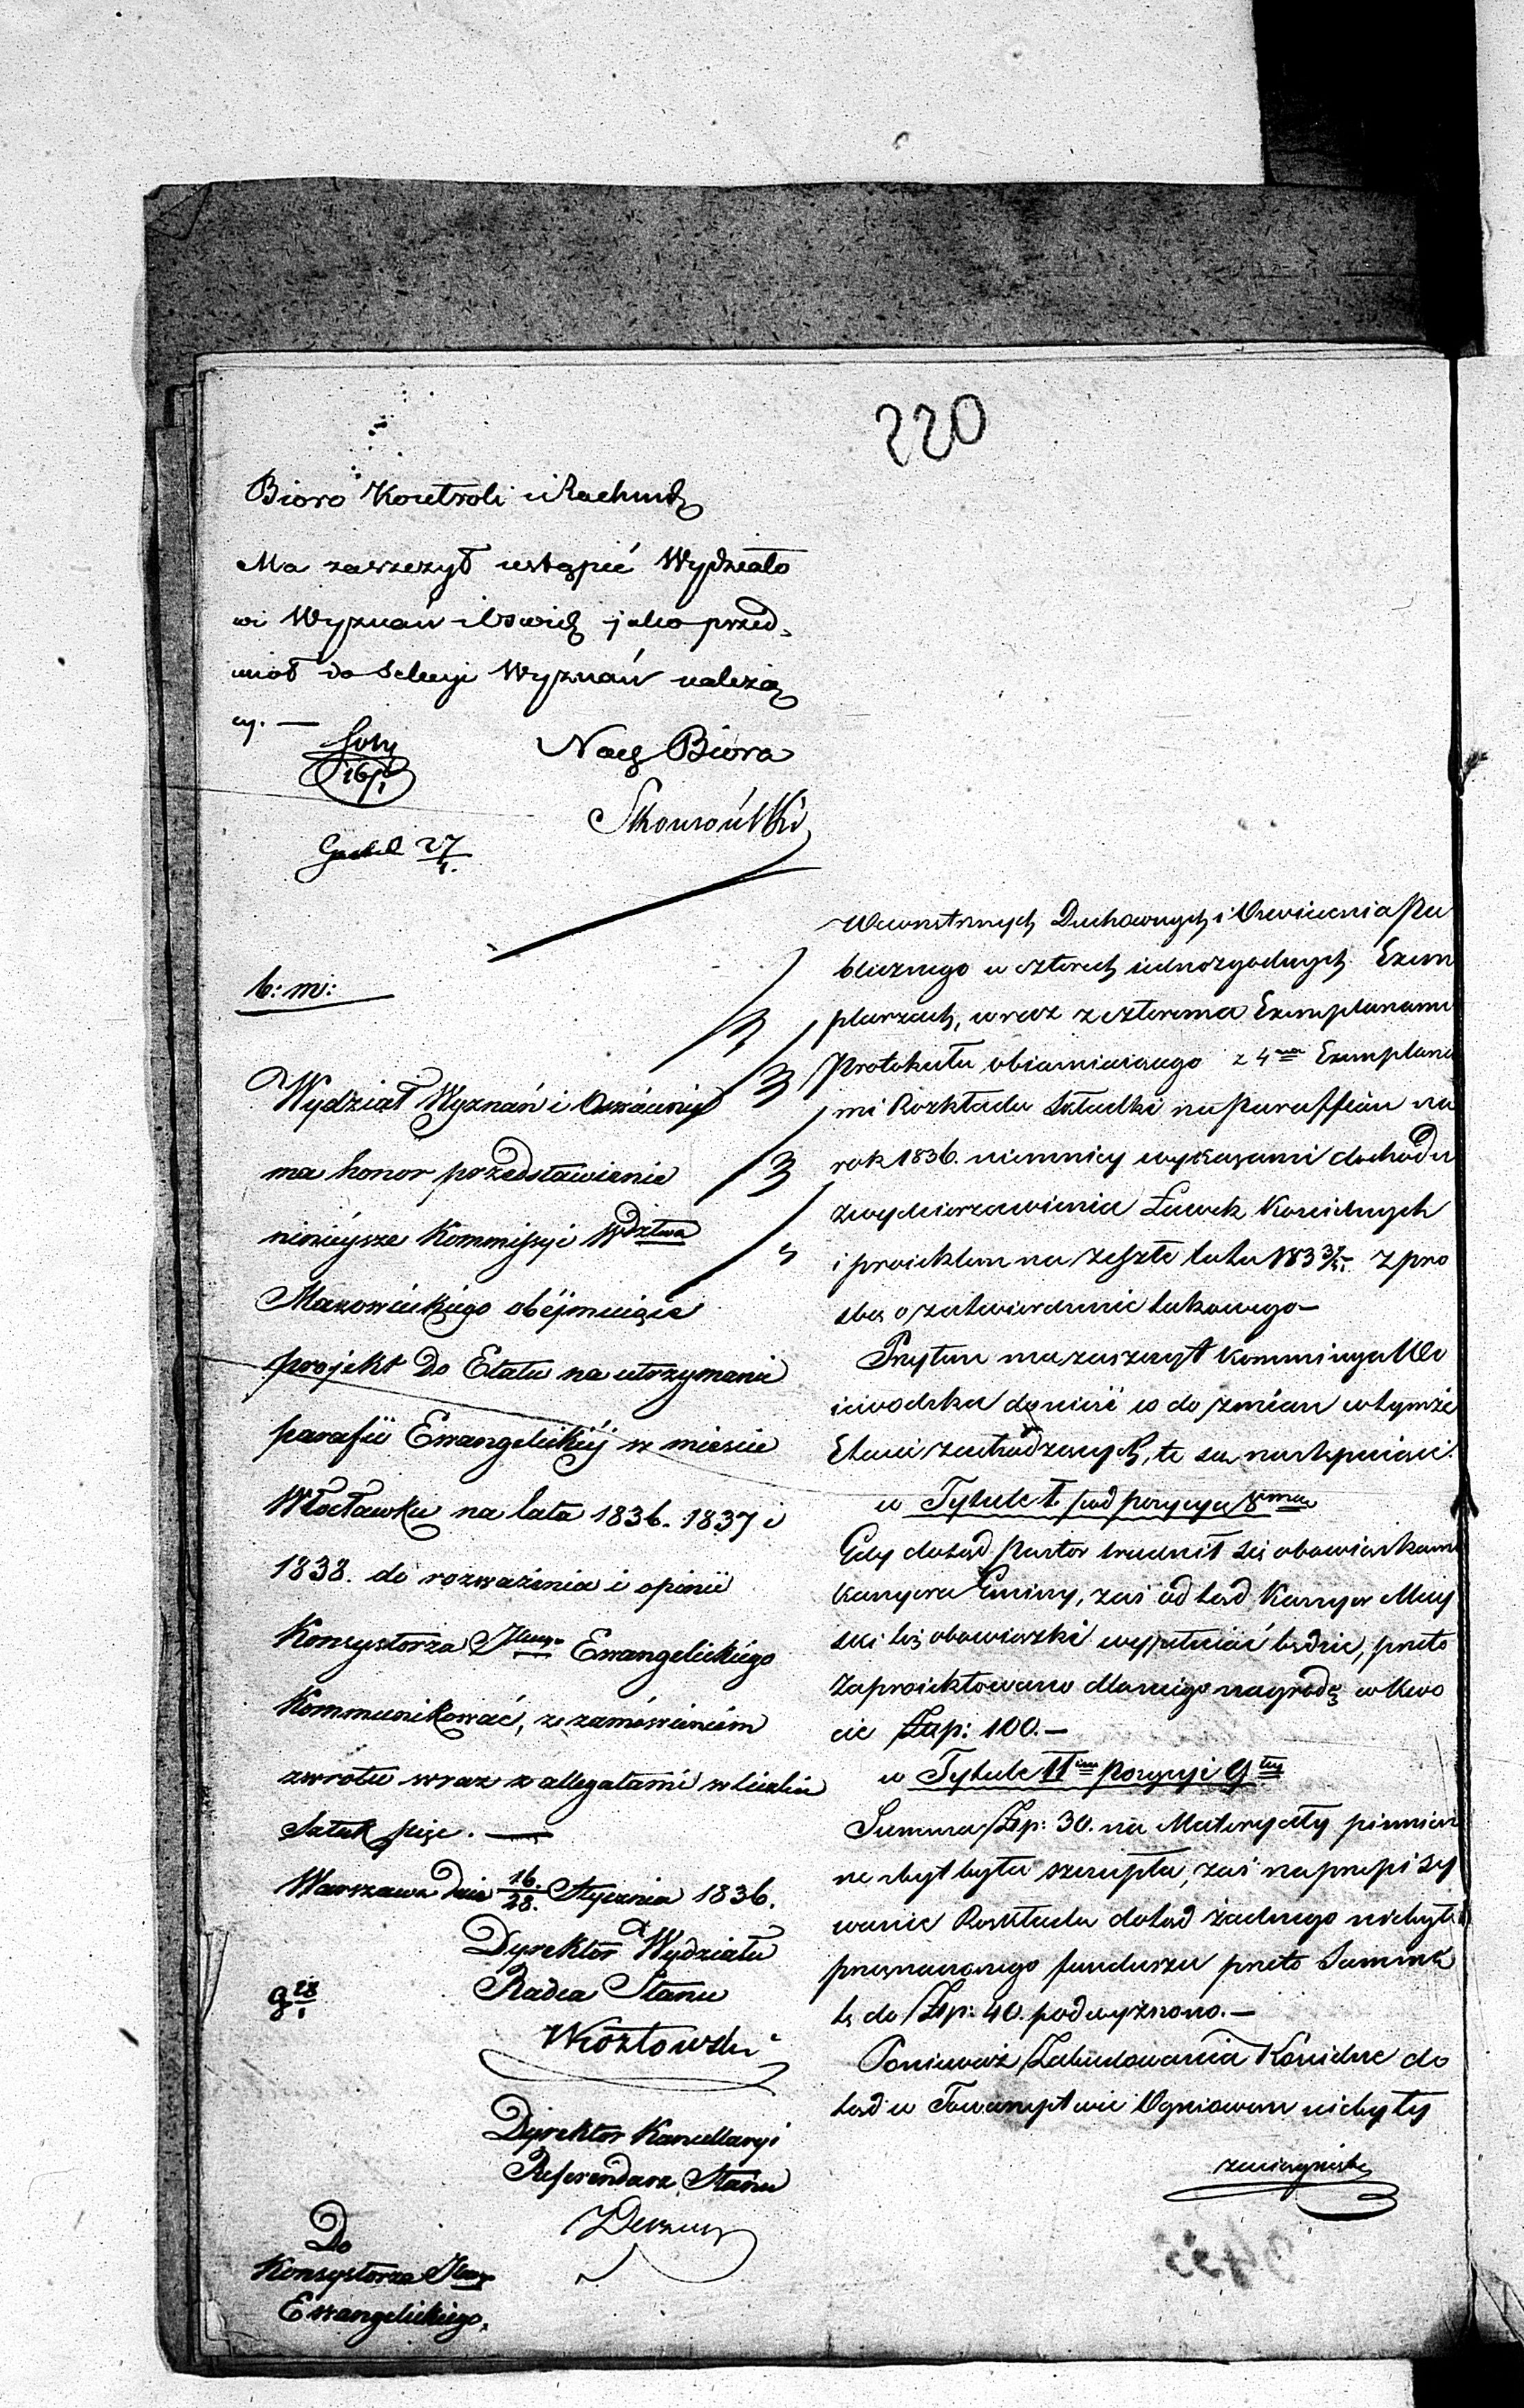 220
Bioro Kontroli i Rachund
Ma zaszczyt ustąpić Wydziało
wi Wyznań i Oświe jako przed-
miot do Sekcyi Wyznań należą
cy. —
Nacz Biora
16/1
27/1.
b: m:
Wydział Wyznań i Oswiecenia
ma honor przedstawienie
niniéysze Kommissyi Wdztwa
Mazowieckiego obéjmuiące
projekt do Etatu na utrzymanie
parafii Ewangelickiéj w miescie
Włocławku na lata 1836. 1837 i
1838. do rozważenia i opinii
Konsystorza Jlnego Ewangelickiego
Kommunikować, z zamówieniem
zwrotu wraz z allegatami w liczbie
Sztuk pięc. —
Warszawa dnia 16./28. Stycznia 1836.
Dyrektor Wydziału
Radca Stanu
Kozłowski
28/1
Dyrektor Kancellaryi
Referendarz Stanu
Do
Konsystorza Jlnego
Ewangelickiego.
Wewnętrznych Duchownych i Oswiecenia Pu
blicznego w czterech iednozgodnych Exem
plarzach, wraz z czterema Exemplarzami
Protokułu obiasniaiącego z 4ma Exemplarza
mi Rozkładu Składki na Paraffian na
rok 1836. niemniey wykazami dochodu
z wydzierzawienia Ławek Koscielnych
i proiektem na zeszłe lata 183 3/5. z pro
sbą o zatwierdzenie takowego —
Przytem ma zaszczyt Kommissya Wo
iewodzka donieść co do zmian w tymże
Etacie zachodzących, te są następuiące:
w Tytule I. pod pozycyą 8ma
Gdy dotąd Pastor trudnił się obowiązkami
Kassyera Gminy, zaś odtąd Kassyer Miey
ski też obowiązki wypełniać będzie, przeto
zaproiektowano dla niego nagrodę w kwo
cie Złp: 100. —
w Tytule IIim pozycyi 9tey
Summa Złp: 30. na Materyały pismien
ne zbyt była szczupła, zaś na przepisy
wanie Rozkładu dotąd żadnego niebyło
przeznaczonego funduszu przeto Summę
tę do Złp: 40. podwyższono. —
Ponieważ Zabudowania Koscielne do
tąd w Towarzystwie Ogniowem niebyły